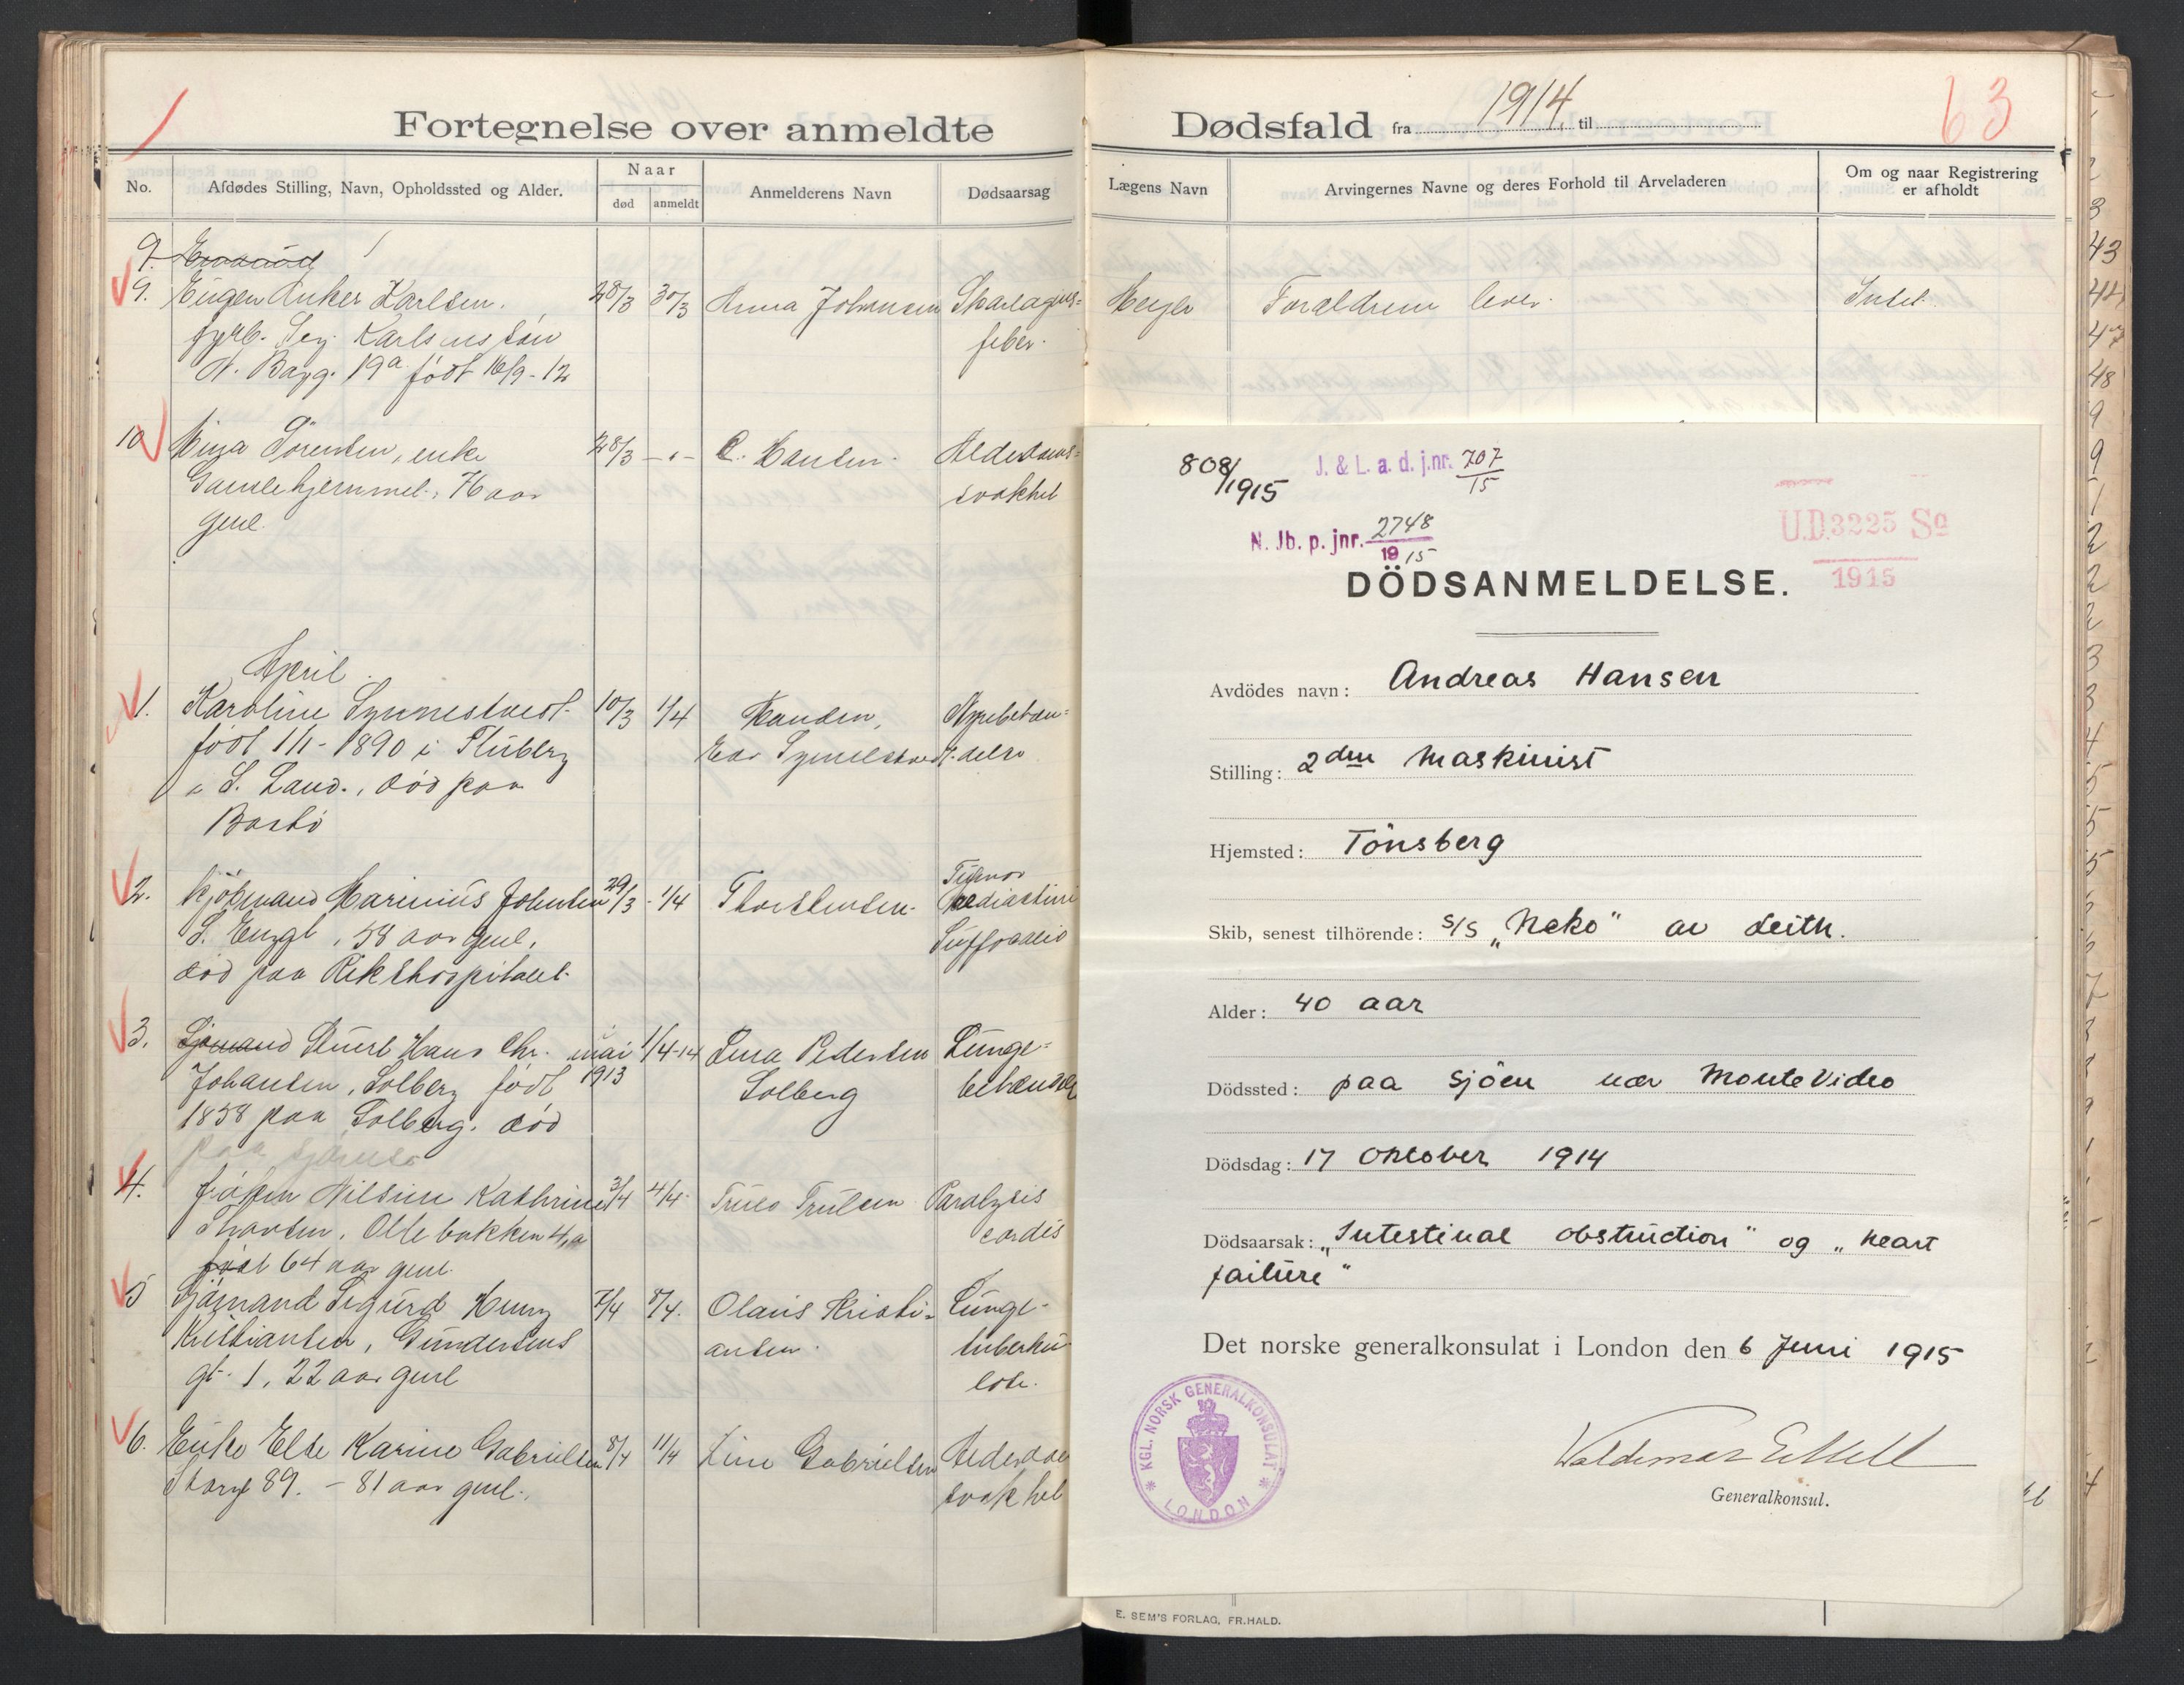 Fortegnelse over anmeldte
No.
Afdødes Stilling, Navn, Opholdssted og Alder.
Naar
død
anmeldt
Anmelderens Navn
Dødsaarsag
9.
9. Eugen Anker Karlsen. 28/3 30/3 Anna Johansen Skarlagens=
Karls søn feber.
N. Bagg. 19a født 16/9-12
10 Sørensen, enke 28/3 -"- C. Hansen. Alderdoms=
Gamlehjemmet, 76 aar svakhet
gml.
April
1. Karoline Synnestvedt 10/3 1/4
født 1/1-1890 i Fluberg
i S. Land., død paa
Bastø
2. Kjøbmand Marinius Johnsen 29/3 - 1/4 Thorstensen. mediastini
58 aar gml, Suffocatio
død paa Rikshospitalet
3. Hans Chr. mai 1913 1/4-14 Lina Pedersen Lunge=
Johansen, Solberg født Solberg
1858 paa Solberg. død
paa sjømes
4. frøken Nilsine Kathrine 3/4 4/4 Paralysis
Ollebakken 4a cordis
født 64 aar gml.
5 Sjømand Sigurd Henry 7/4 8/4. Olaus Kristi= Lunge-
Kristiansen, Gundersens ansen. tuberku
gt. 1, 22 aar gml lose.
6. Enke Else Karine Gabrielsen 8/4 11/4 Line Gabrielsen Alderdoms
Storgt 89. - 81 aar gml. svakhet
Dødsfald fra 1914 til
63
Lægens Navn
Arvingernes Navne og deres Forhold til Arveladeren
Om og naar Registrering
er afholdt
Forældrene lever. Intet.
808/1915
J. & L. a. d. j.nr. 707/15
N. Jb. p. jnr. 2748/1915
U.D. 3225 Sø
1915
DÖDSANMELDELSE.
Avdödes navn: Andreas Hansen
Stilling: 2den Maskinist
Hjemsted: Tönsberg
Skib, senest tilhörende: s/s „Neko" av Leith.
Alder: 40 aar
Dödssted: paa sjöen nær Monte Video
Dödsdag: 17 Oktober 1914
Dödsaarsak: „Intestinal obstruction" og „heart
failure"
Det norske generalkonsulat i London den 6 Juni 1915
KGL. NORSK GENERALKONSULAT
LONDON
Generalkonsul.
E. SEM'S FORLAG, FR.HALD.